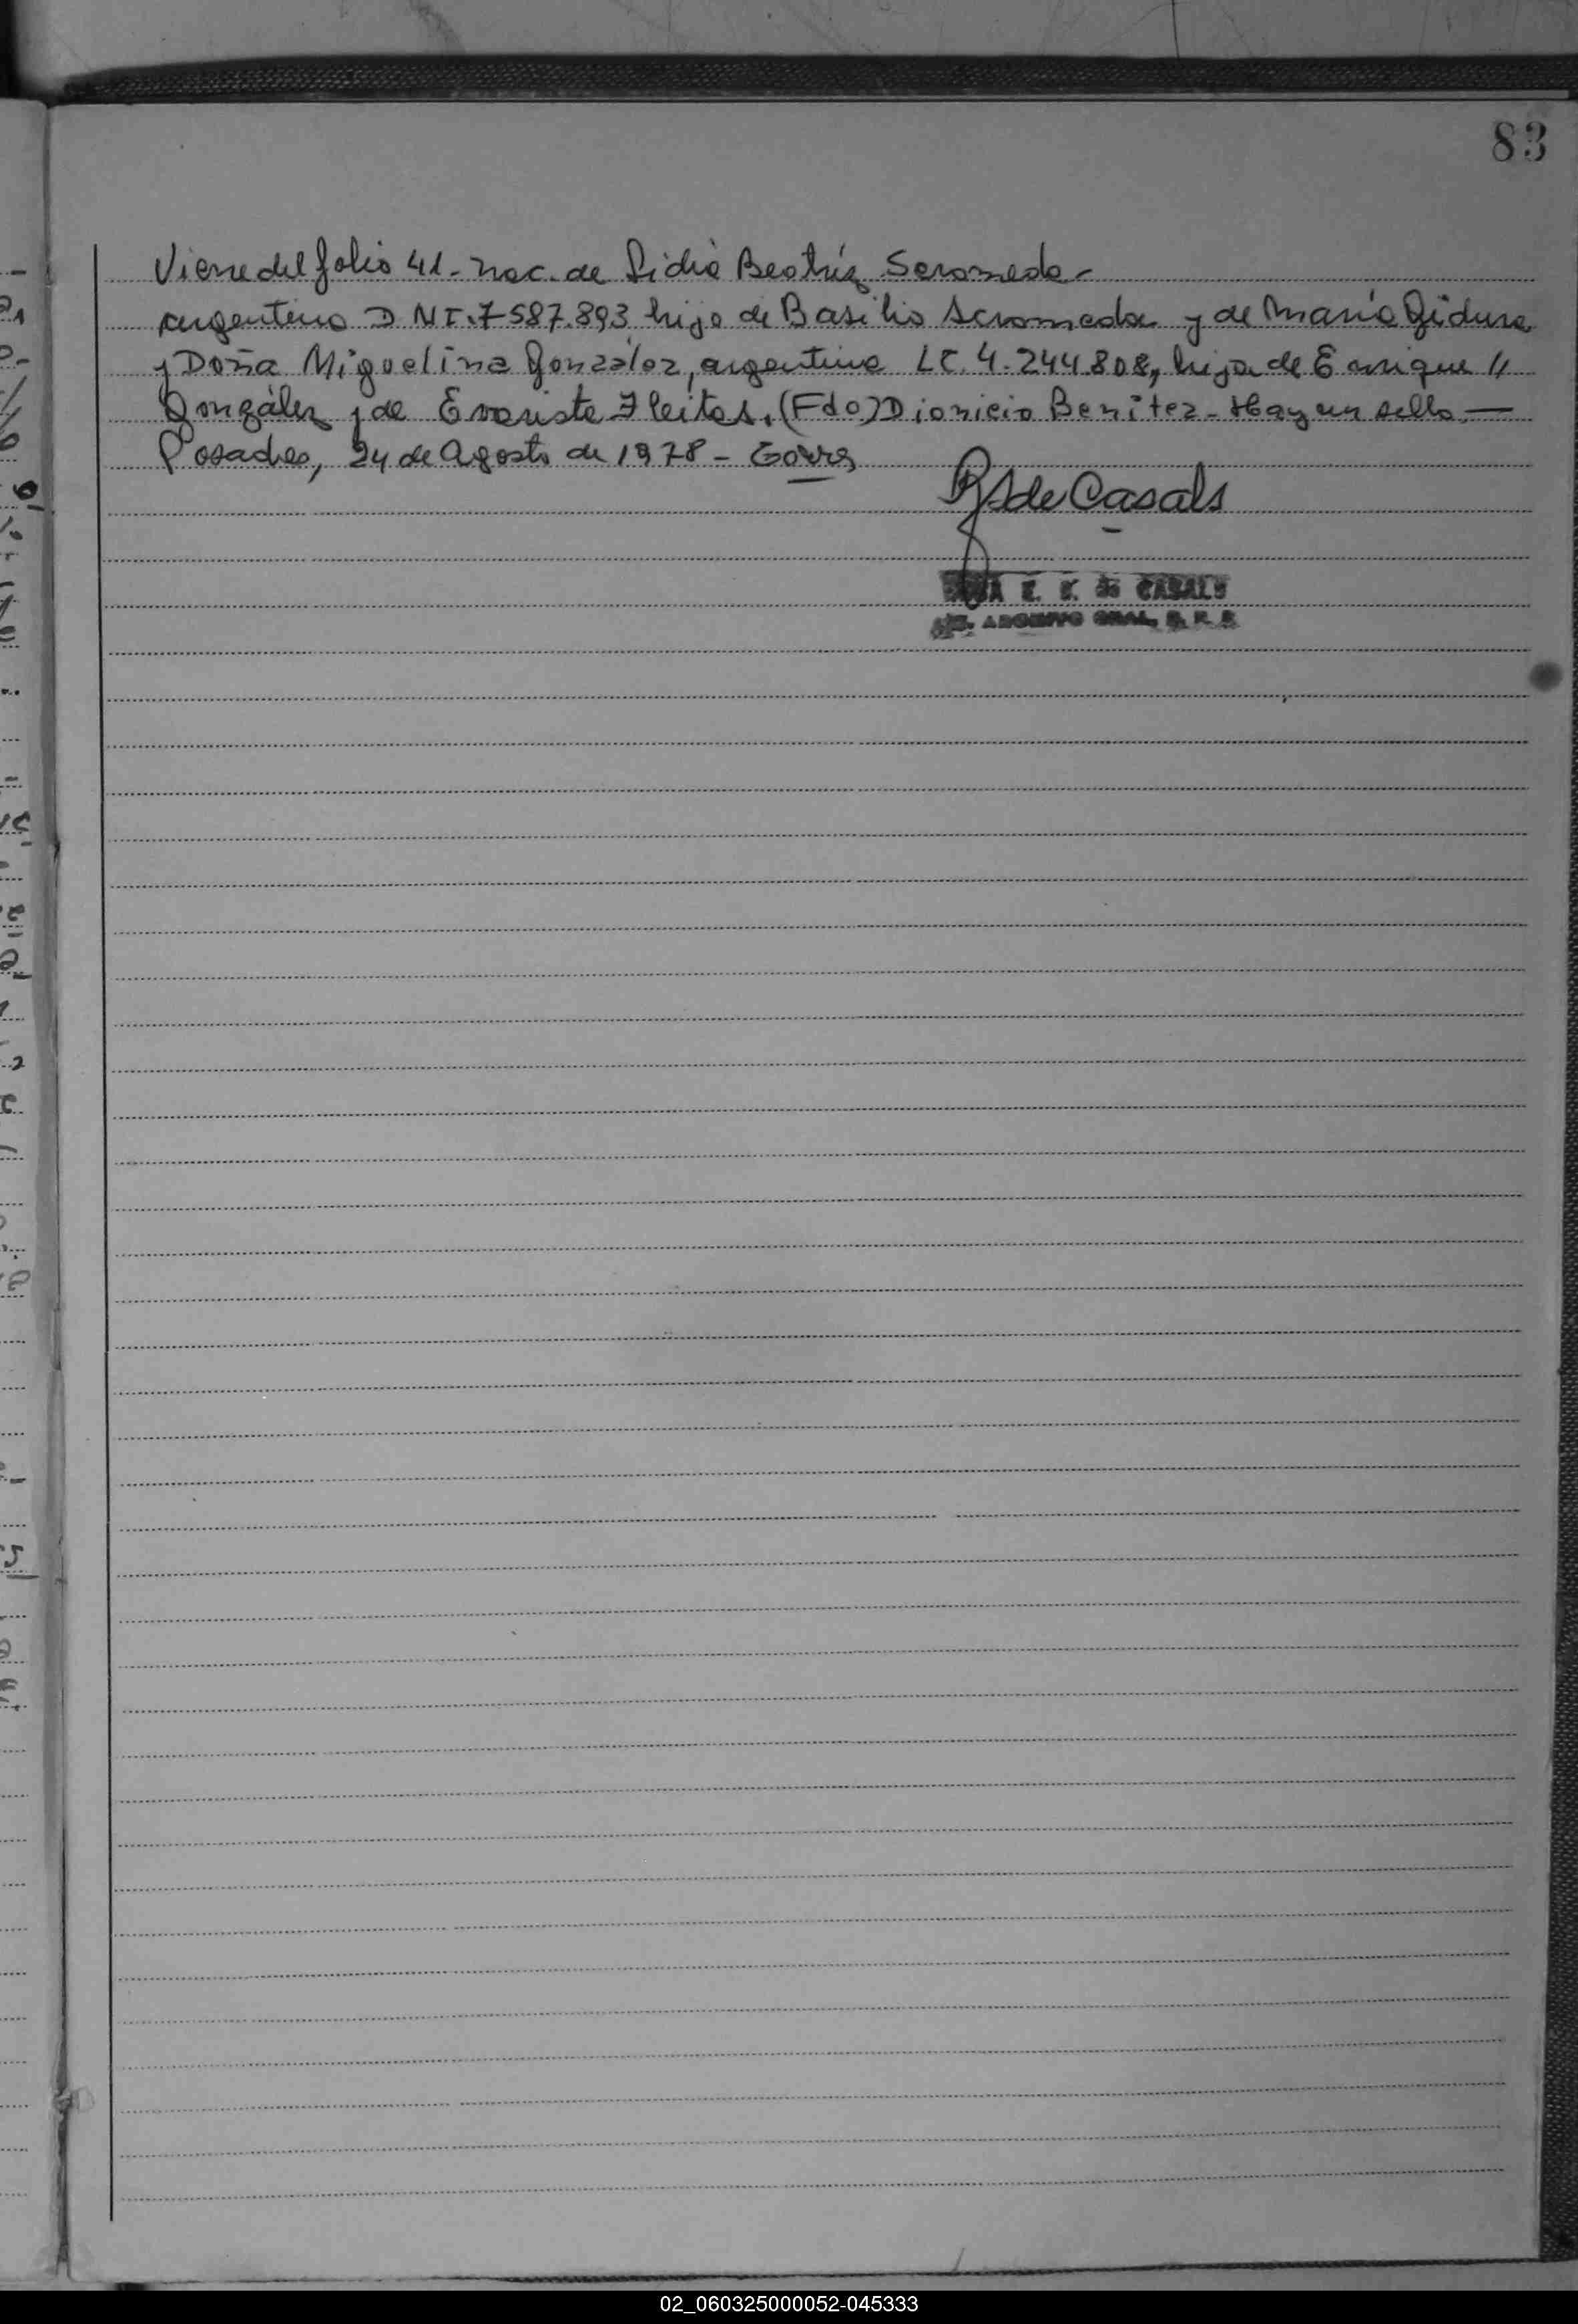 83
Viene del folio 41 - nac. de Lidia Beatríz Seromeda -
argentino D NI. 7587.893 hijo de Basilio Seromeda y de María Gidura
y Doña Miguelina González, argentina LC. 4.244808, hija de Enrique "
González y de Evarista Fleitas. (Fdo) Dionicio Benítez - Hay un sello. —
Posadas, 24 de Agosto de 1978 -
de Casals
E. de CASALS
ARCHIVO GRAL.
02_060325000052-045333